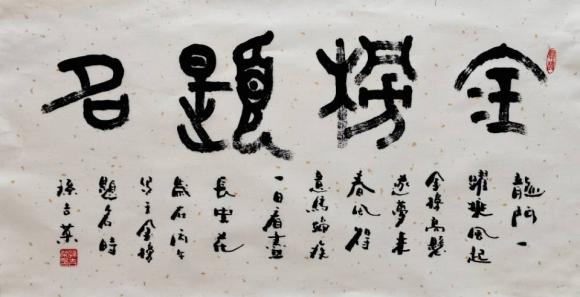 金榜題名
龍門一
躍乘風起
金榜高懸
逐夢來
春風得
意馬蹄疾
一日看盡
長安花
歲在丙午
金榜
題名時